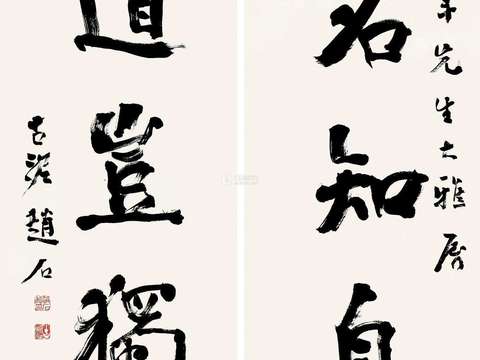 先生大雅屬
名知自
道豈獨
古泥趙石